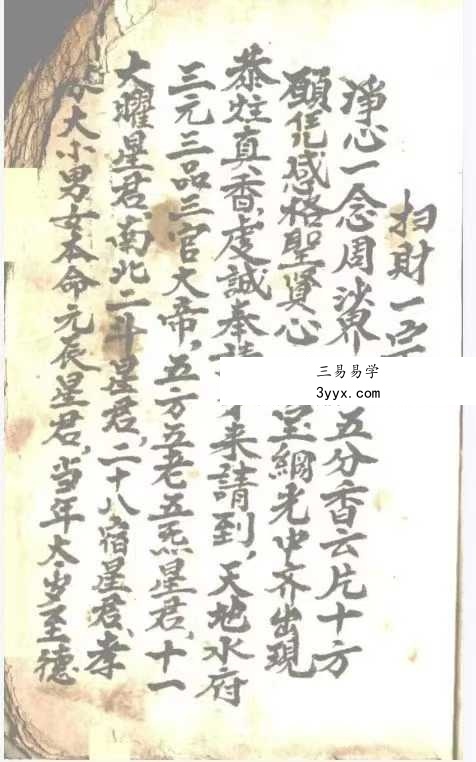 扫財一宗
淨心一念周沙界 五分香云片十方
願凭感格聖賢心 宝網光中齐出現
恭炷真香,虔誠奉請 来請到,天地水府
三元三品三官大帝,五方五老五炁星君,十一
大曜星君,南北二斗星君,二十八宿星君,孝
家大小男女本命元辰星君,当年太岁至德
三易易学
3yyx.com